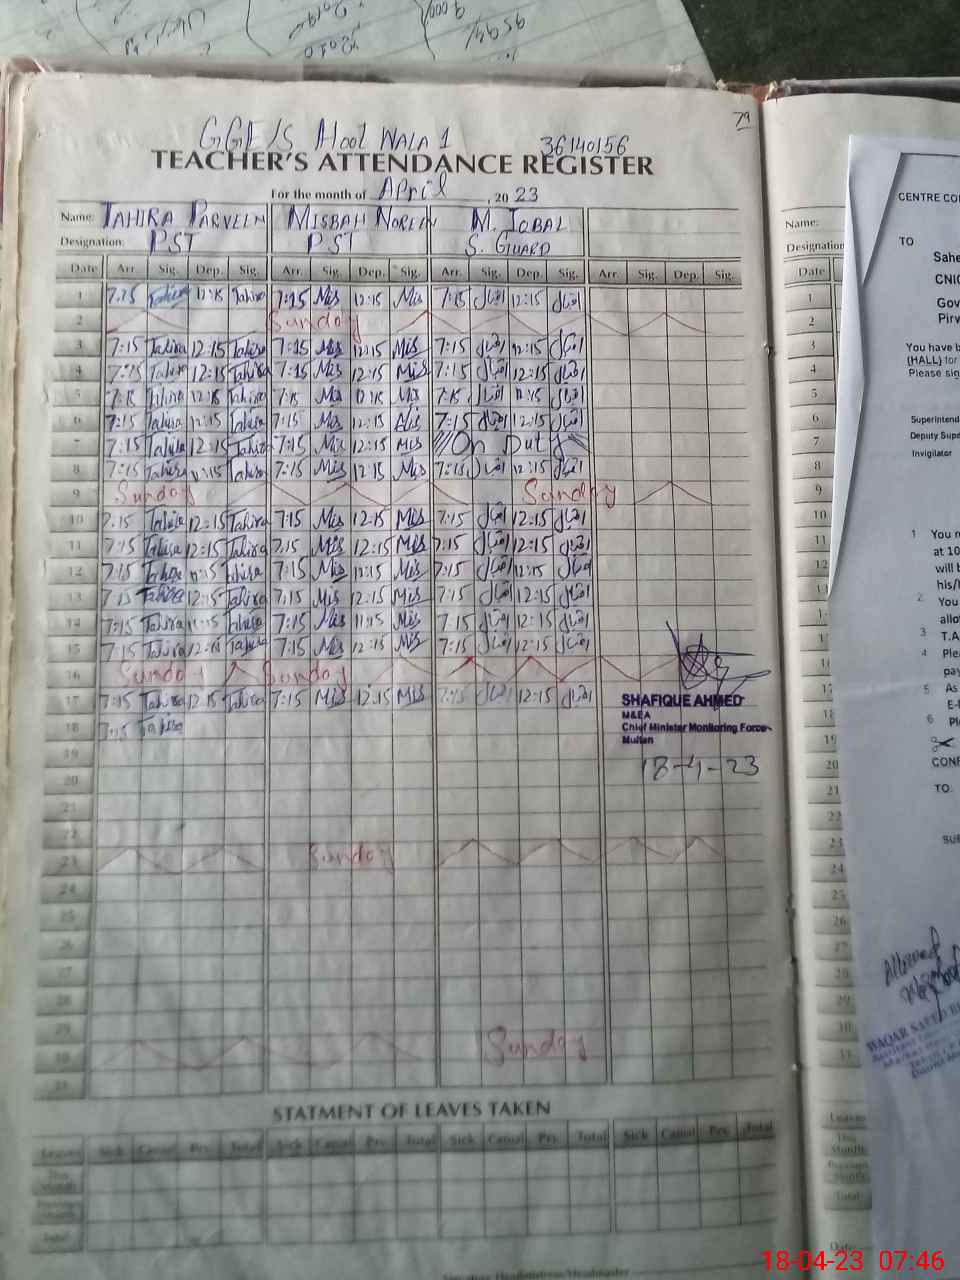 79
GGE/S Hoot WALA 1 36140156
TEACHER'S ATTENDANCE REGISTER
For the month of April, 2023
Name: TAHIRA PARVEEN MISBAH NOREEN M. IQBAL
Designation: PST PST S. GUARD
Date Arr. Sig. Dep. Sig. Arr. Sig. Dep. Sig. Arr. Sig. Dep. Sig. Arr. Sig. Dep. Sig.
1 7:15 Tahira 12:15 Tahira 7:15 Mis 12:15 Mis 7:15 اقبال 12:15 اقبال
2 Sunday
3 7:15 Tahira 12:15 Tahira 7:15 Mis 12:15 Mis 7:15 اقبال 12:15 اقبال
4 7:15 Tahira 12:15 Tahira 7:15 Mis 12:15 Mis 7:15 اقبال 12:15 اقبال
5 7:15 Tahira 12:15 Tahira 7:15 Mis 12:15 Mis 7:15 اقبال 12:15 اقبال
6 7:15 Tahira 12:15 Tahira 7:15 Mis 12:15 Mis 7:15 اقبال 12:15 اقبال
7 7:15 Tahira 12:15 Tahira 7:15 Mis 12:15 Mis On Duty
8 7:15 Tahira 12:15 Tahira 7:15 Mis 12:15 Mis 7:15 اقبال 12:15 اقبال
9 Sunday Sunday
10 7:15 Tahira 12:15 Tahira 7:15 Mis 12:15 Mis 7:15 اقبال 12:15 اقبال
11 7:15 Tahira 12:15 Tahira 7:15 Mis 12:15 Mis 7:15 اقبال 12:15 اقبال
12 7:15 Tahira 12:15 Tahira 7:15 Mis 12:15 Mis 7:15 اقبال 12:15 اقبال
13 7:15 Tahira 12:15 Tahira 7:15 Mis 12:15 Mis 7:15 اقبال 12:15 اقبال
14 7:15 Tahira 11:15 Tahira 7:15 Mis 11:15 Mis 7:15 اقبال 12:15 اقبال
15 7:15 Tahira 12:15 Tahira 7:15 Mis 12:15 Mis 7:15 اقبال 12:15 اقبال
16 Sunday Sunday
17 7:15 Tahira 12:15 Tahira 7:15 Mis 12:15 Mis 7:15 اقبال 12:15 اقبال
18 7:15 Tahira
SHAFIQUE AHMED
M&EA
Chief Minister Monitoring Force
Multan
18-4-23
19
20
21
22
23 Sunday
24
25
26
27
28
29
30 Sunday
31
STATMENT OF LEAVES TAKEN
Leaves Sick Casual Prv. Total Sick Casual Prv. Total Sick Casual Prv. Total Sick Casual Prv. Total
This Month
Previous Month
Total
Name:
Designation
Date
1
2
3
4
5
6
7
8
9
10
11
12
13
20
21
22
23
24
25
26
27
28
29
30
31
Leaves
This Month
Previous Month
Total
Date:
CENTRE CO
TO
Sahe
CNIC
Gov
Pirw
You have b
(HALL) for
Please sig
Superintend
Deputy Supe
Invigilator
1 You m
at 10
will b
his/
2 You
allo
3 T.A
4 Ple
pay
5 As
E-
6 Pl
CONF
TO.
SUB
Allowed
WAQAR SAEED
18-04-23 07:46